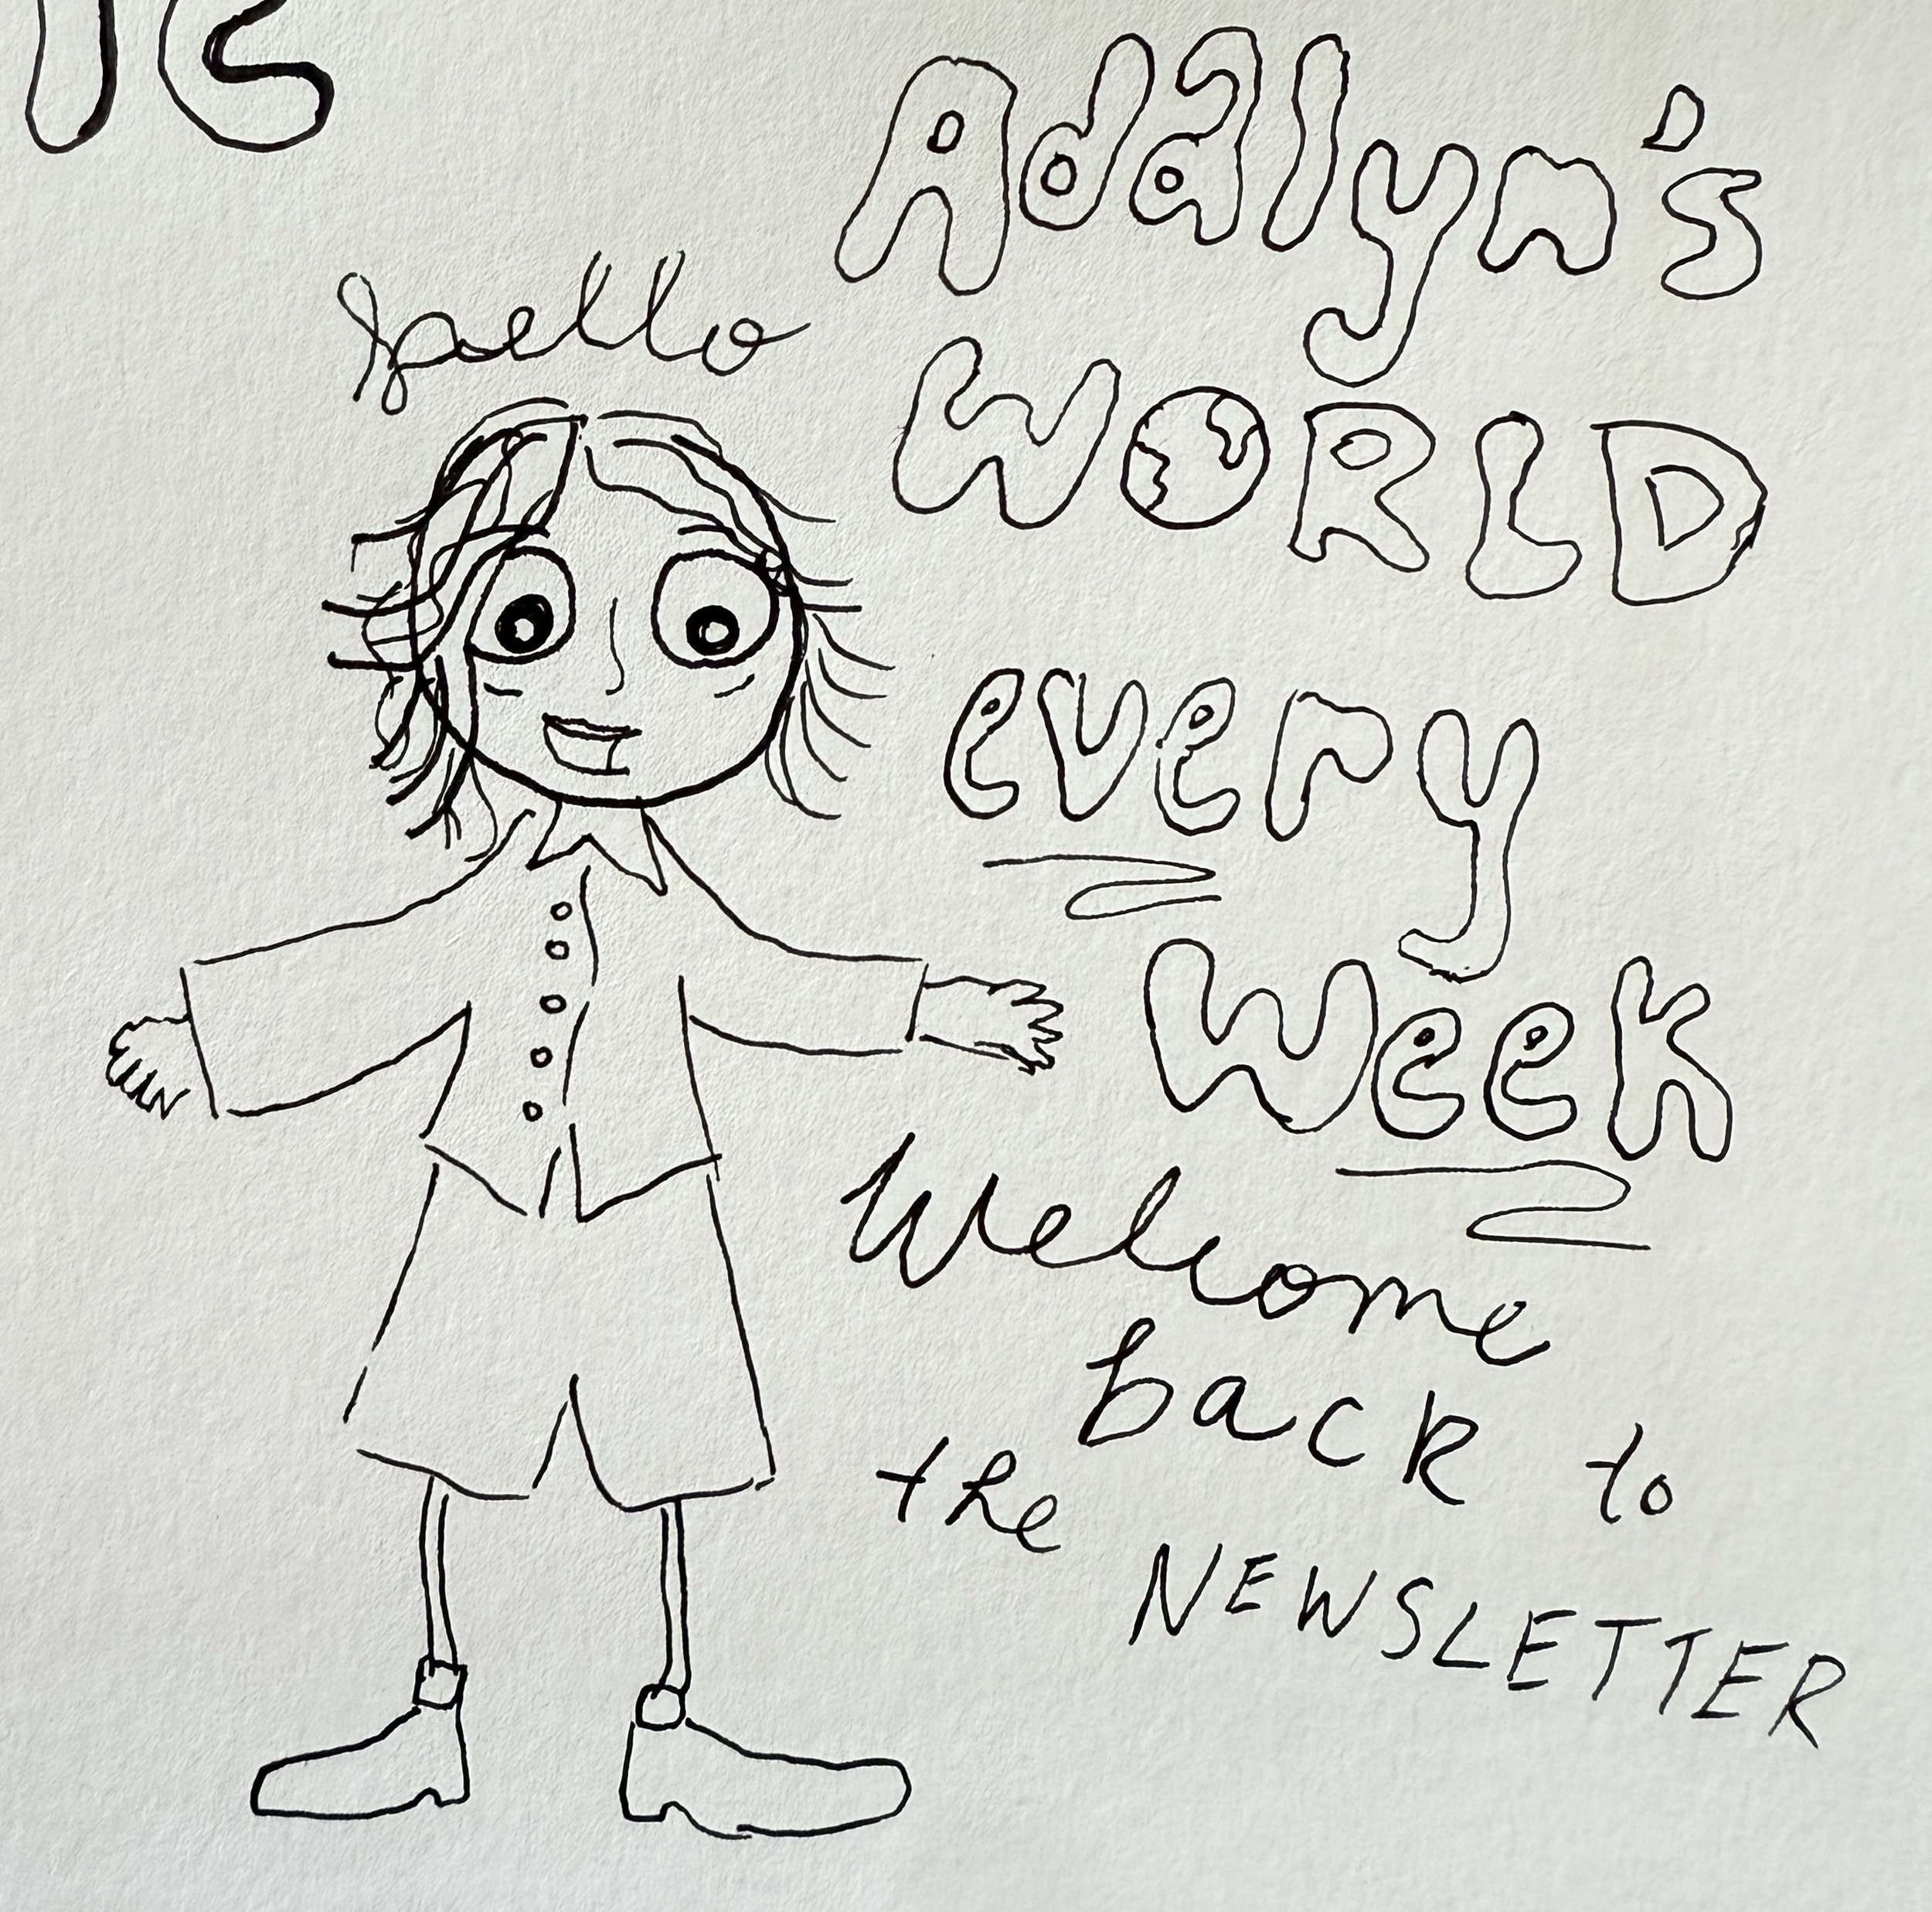 hello
Adalyn's
WORLD
every
week
Welcome
back to
the
NEWSLETTER